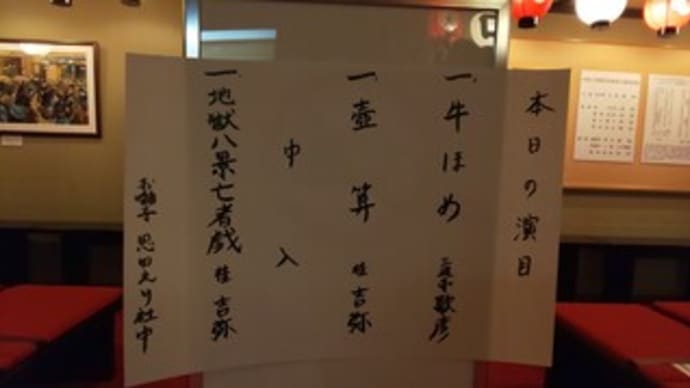 本日の演目
一、牛ほめ
一、壺算 桂 吉弥
中入
一、地獄八景亡者戯 桂 吉弥
お囃子 恩田えり社中